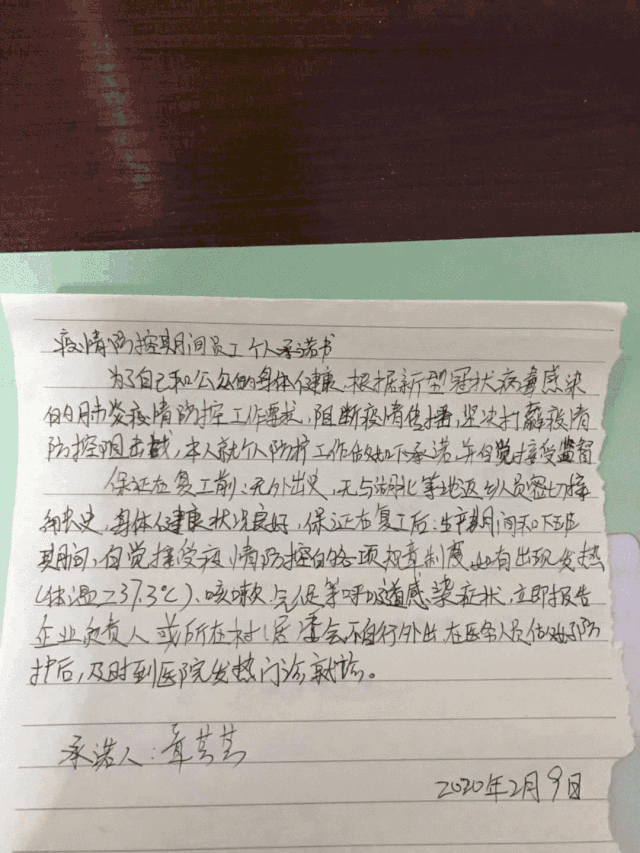 疫情防控期间员工个人承诺书
为了自己和公众的身体健康,根据新型冠状病毒感染
的肺炎疫情防控工作要求,阻断疫情传播,坚决打赢疫情
防控阻击战,本人就个人防护工作做如下承诺,并自觉接受监督
保证在复工前:无外出史,无与湖北等地返乡人员密切接
触史,身体健康状况良好,保证在复工后:生产期间和下班
期间,自觉接受疫情防控的各项规章制度,如有出现发热
(体温≥37.3℃)、咳嗽气促等呼吸道感染症状,立即报告
企业负责人或所在村(居)委会,不自行外出,在医务人员做好防
护后,及时到医院发热门诊就诊。
承诺人:章芸芸
2020年2月9日